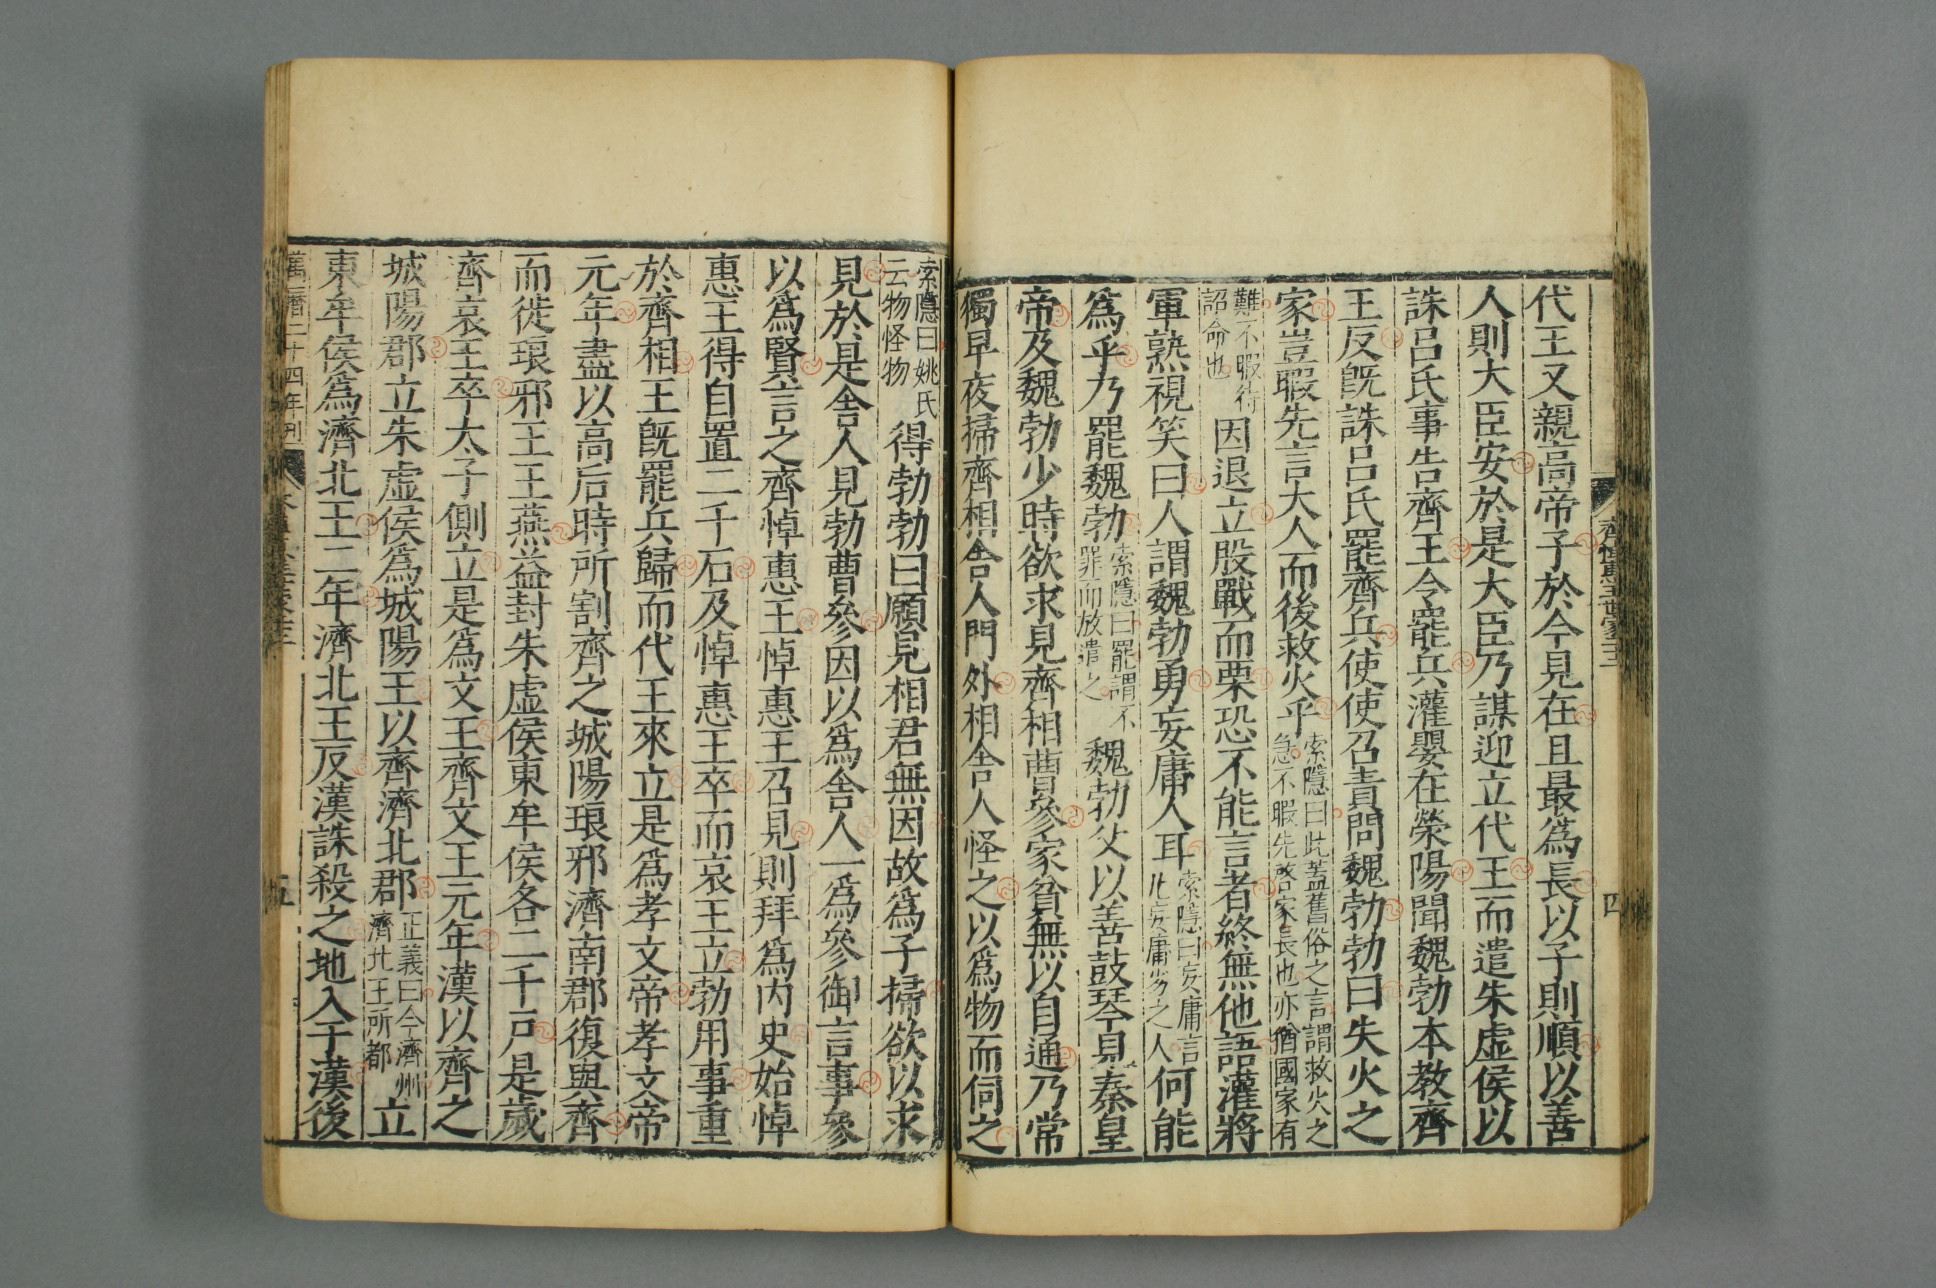 齊悼惠王世家二十二
四
代王又親高帝子於今見在且最爲長以子則順以善
人則大臣安於是大臣乃謀迎立代王而遣朱虛侯以
誅呂氏事告齊王令罷兵灌嬰在滎陽聞魏勃本教齊
王反旣誅呂氏罷齊兵使使召責問魏勃勃曰失火之
家豈暇先言大人而後救火乎索隱曰此蓋舊俗之言謂救火之急不暇先啓家長也亦猶國家有
難不暇待詔命也因退立股戰而栗恐不能言者終無他語灌將
軍熟視笑曰人謂魏勃勇妄庸人耳索隱曰妄庸言凡妄庸劣之人何能
爲乎乃罷魏勃索隱曰罷謂不罪而放遣之魏勃父以善鼓琴見秦皇
帝及魏勃少時欲求見齊相曹參家貧無以自通乃常
獨早夜掃齊相舍人門外相舍人怪之以爲物而伺之
索隱曰姚氏云物怪物得勃勃曰願見相君無因故爲子掃欲以求
見於是舍人見勃曹參因以爲舍人一爲參御言事參
以爲賢言之齊悼惠王悼惠王召見則拜爲内史始悼
惠王得自置二千石及悼惠王卒而哀王立勃用事重
於齊相王旣罷兵歸而代王來立是爲孝文帝孝文帝
元年盡以高后時所割齊之城陽琅邪濟南郡復與齊
而徙琅邪王王燕益封朱虛侯東牟侯各二千戸是歲
齊哀王卒太子側立是爲文王齊文王元年漢以齊之
城陽郡立朱虛侯爲城陽王以齊濟北郡正義曰今濟州濟北王所都立
東牟侯爲濟北王二年濟北王反漢誅殺之地入于漢後
萬曆二十四年刊
五